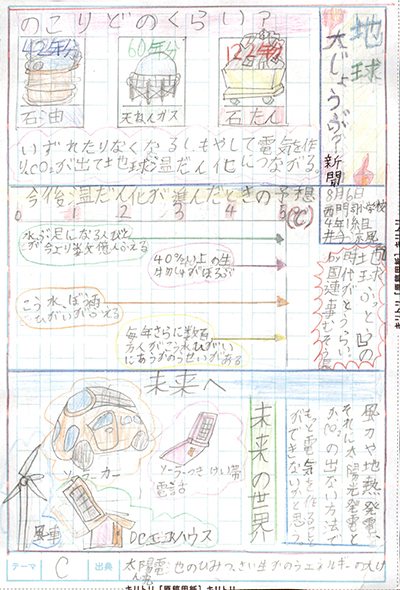 地球
大じょうぶ?
新聞
8月6日
4年1組
のこりどのくらい?
42年分
60年分
122年分
石油
天ねんガス
石たん
いずれたりなくなるし、もやして電気を作
り、CO₂が出て地球温だん化につながる。
今後温だん化が進んだときの予想
0 1 2 3 4 5 (℃)
水ぶ足になる人びと
が今より数億人ふえる
40%以上の生
物がほろぶ
こう水、ぼう風
ひがいがふえる
毎年さらに数百
万人がこう水ひがい
にあうかのうせいがある
未来へ
ソーラーカー
ソーラーつきけい帯
電話
風車
DCエコハウス
未来の世界
風力や地熱発電、
それに太陽光発電と
かCO₂の出ない方法で
もっと電気を作ること
ができないかと思う。
テーマ
C
出典
太陽電池のひみつ、さい生かのうエネルギーの大け
ん究
キリトリ【原稿用紙】キリトリ